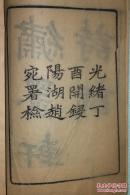 光緒丁
酉開鋟
陽湖趙
宛署檢